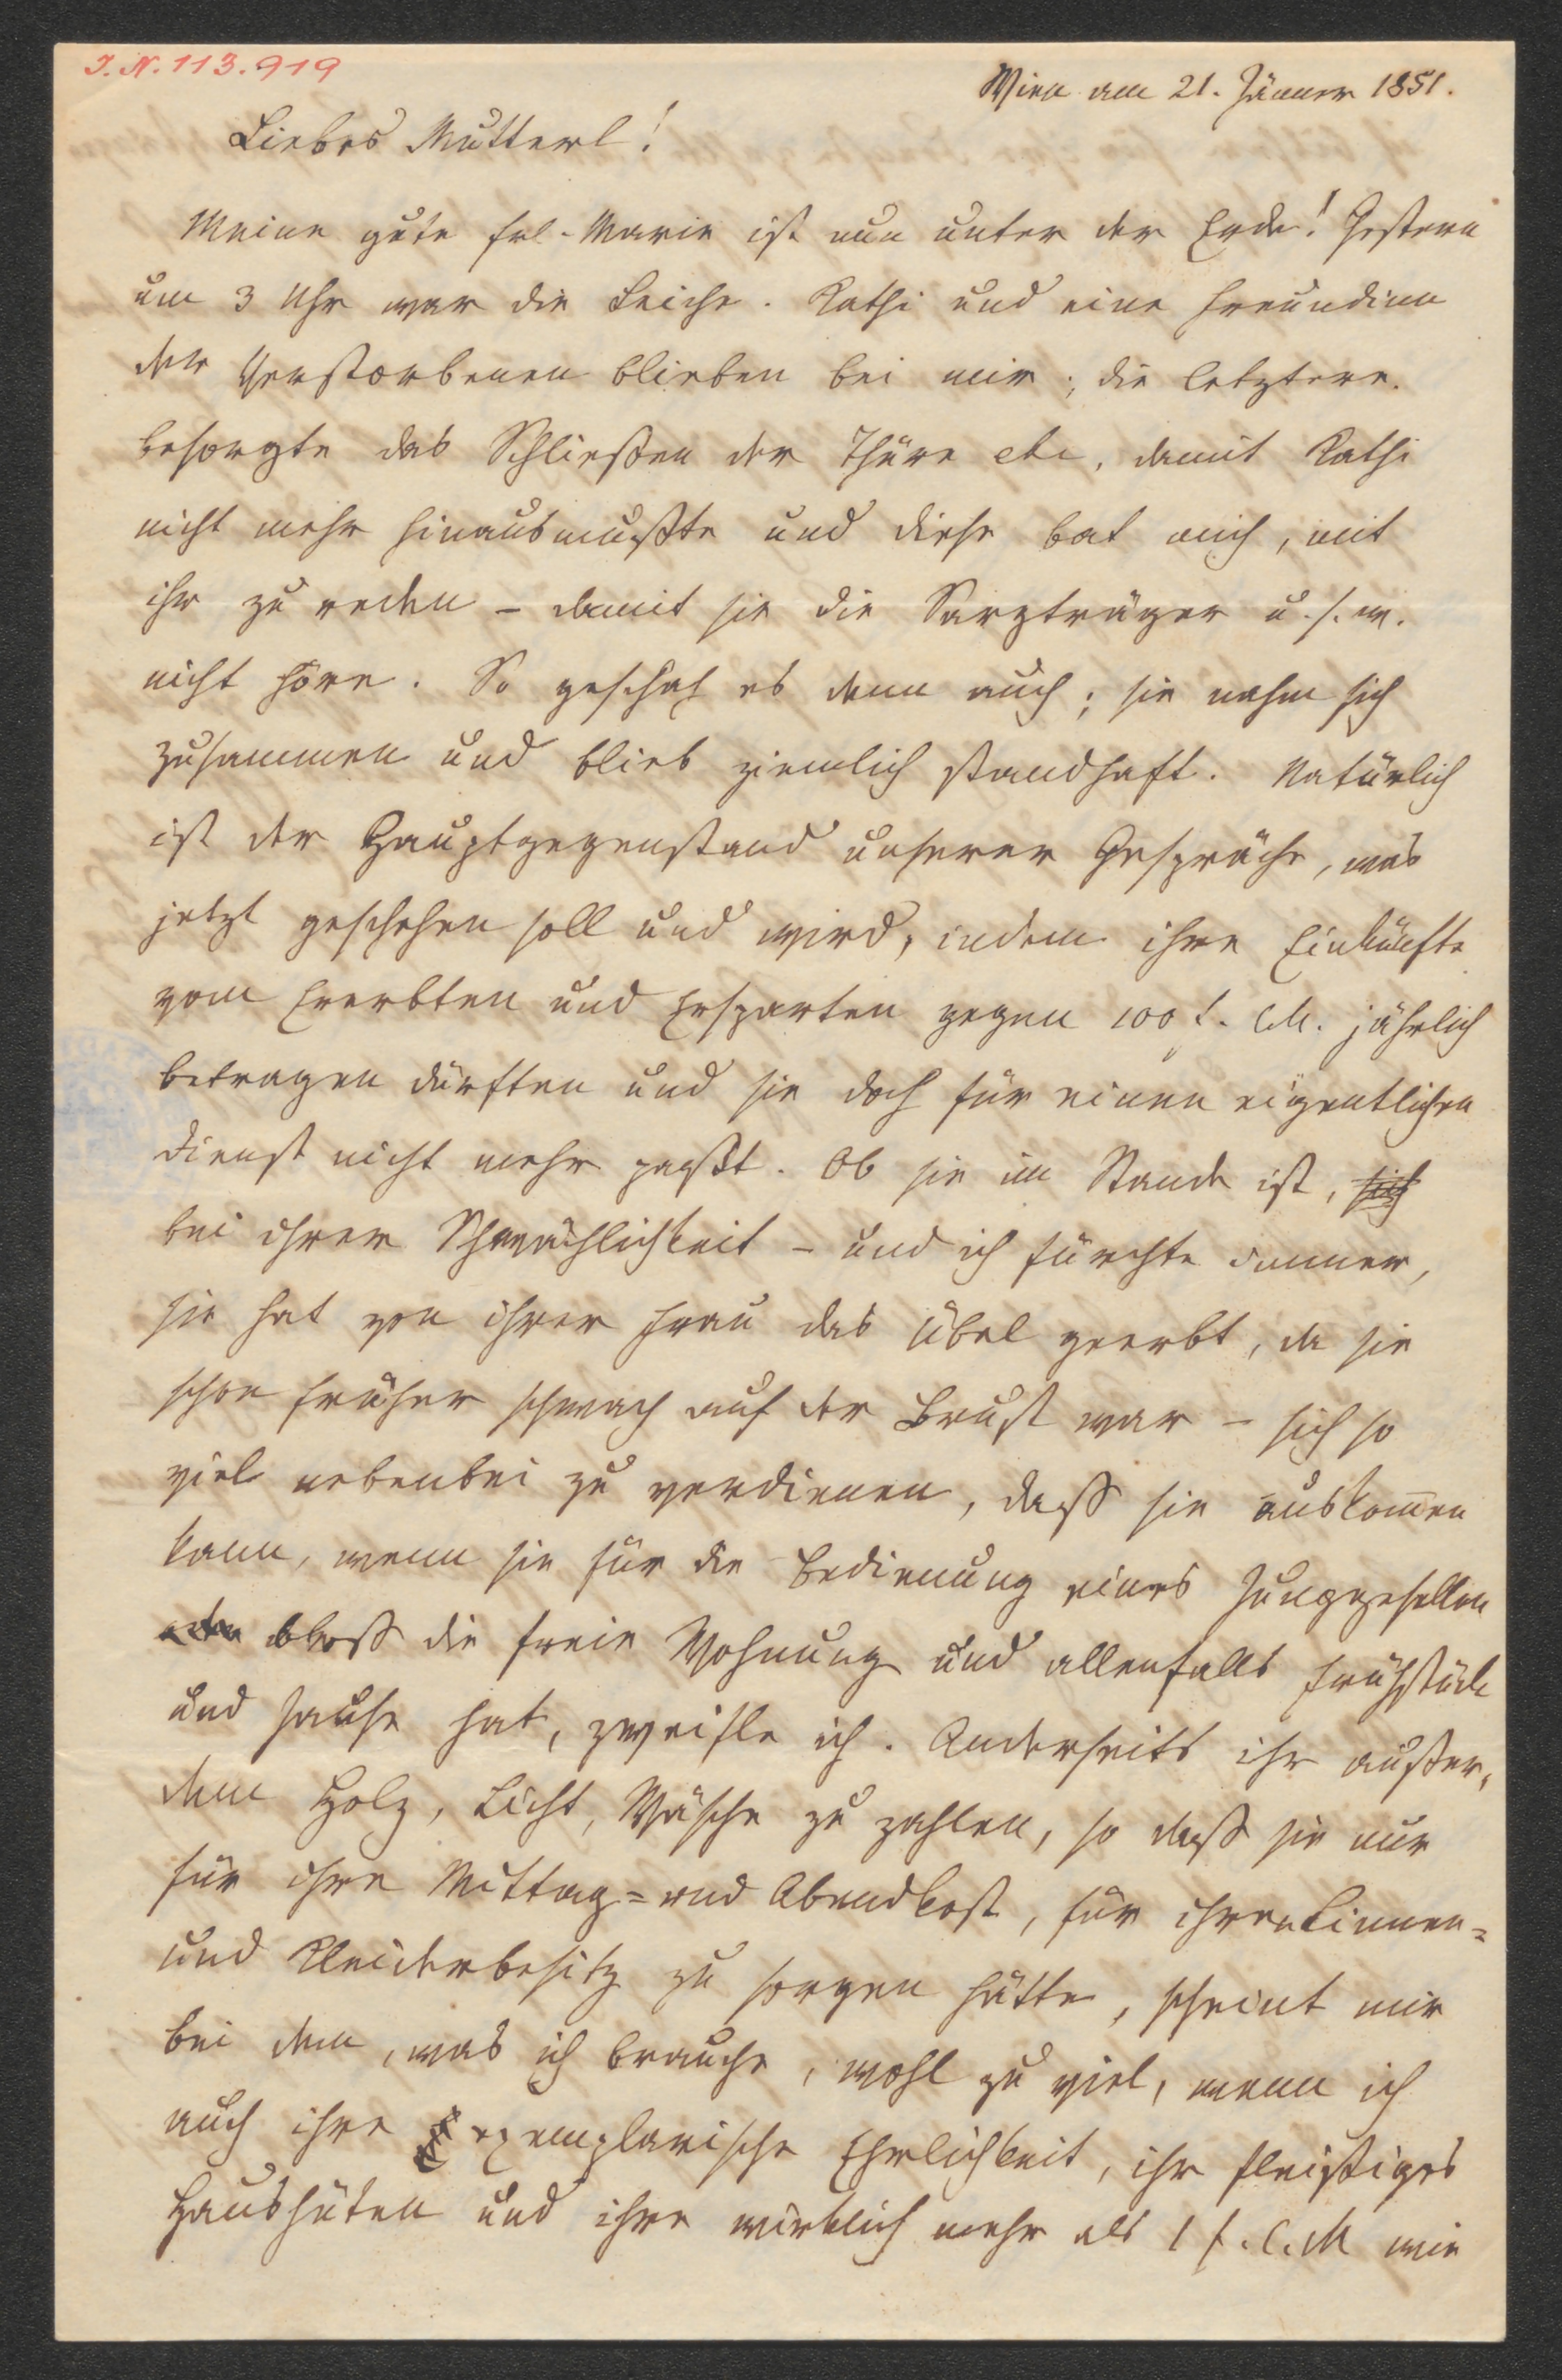 I. N. 113.919
Wien am 21. Jänner 1851.
Liebes Mutterl!
Meine gute Frl. Marie ist nun unter der Erde! Gestern
um 3 Uhr war die Leiche. Kathi und eine Freundinn
der Verstorbenen blieben bei mir; die letztere
besorgte das Schließen der Thüre etc, damit Kathi
nicht mehr hinausmußte und diese bat mich, mit
ihr zu reden – damit sie die Sargträger u.s.w.
nicht höre. So geschah es denn auch; sie nahm sich
zusammen und blieb ziemlich standhaft. Natürlich
ist der Hauptgegenstand unserer Gespräche, was
jetzt geschehen soll und wird, indem ihre Einkünfte
vom Ererbten und Ersparten gegen 100 f. CM. jährlich
betragen dürften und sie doch für einen eigentlichen
Dienst nicht mehr paßt. Ob sie im Stande ist, sich
bei ihrer Schwächlichkeit – und ich fürchte immer,
sie hat von ihrer Frau das Übel geerbt, da sie
schon früher schwach auf der Brust war – sich so
viel nebenbei zu verdienen, daß sie auskomen
kann, wenn sie für die Bedienung eines Junggesellen
bloß die freie Wohnung und allenfalls Frühstück
und Jause hat, zweifle ich. Anderseits ihr außer-
dem Holz, Licht, Wäsche zu zahlen, so daß sie nur
für ihre Mittag= und Abendkost, für ihren Linnen=
und Kleiderbesitz zu sorgen hätte, scheint mir
bei dem, was ich brauche, wohl zu viel, wenn ich
auch ihre exemplarische Ehrlichkeit, ihr fleißiges
Haushüten und ihre wirklich mehr als 1 f. C.M wie